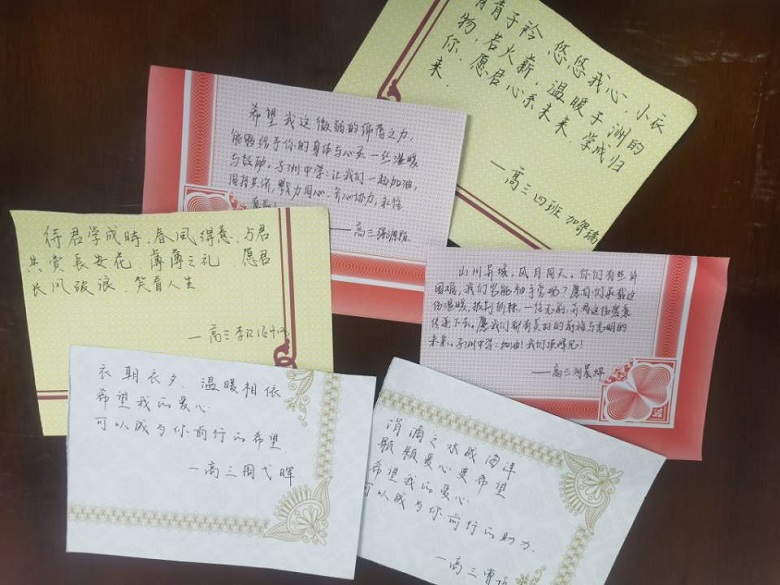 青子衿,悠悠我心,小衣
物,若火薪,温暖子洲的
你,愿君心系未来,学成归
来.
—高三四班
希望我这微弱的绵薄之力,
能够给予你的身体与心灵一些温暖
与鼓励。子洲中学:让我们一起加油,
同心,齐心协力,
—高三
待君学成时,春风得意,与君
共赏长安花,薄薄之礼,愿君
长风破浪,笑看人生
—高三李
山川异域,风月同天。你们有些许
困难,我们岂能袖手旁观?愿你们承载这
份温暖,披荆斩棘,一往无前,并将这份温暖
传递下去。愿我们都有美好的前程与光明的
未来。子洲中学:加油!我们顶峰见!
—高三刘晨
衣朝衣夕,温暖相依
希望我的爱心
可以成为你前行的希望
—高三周弋晖
涓滴之水成海洋
颗颗爱心变希望
希望我的爱心
可以成为你前行的助力.
—高三曹